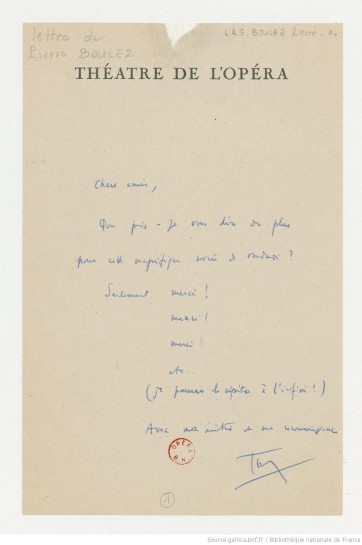 lettre de
Pierre BOULEZ
L.A.S. BOULEZ Pierre. 1
THÉATRE DE L'OPÉRA
Chers amis,
Que puis-je vous dire de plus
pour cette magnifique soirée de vendredi ?
Seulement merci !
merci !
merci !
etc...
(je pourrais le répéter à l'infini !)
Avec mon amitié et ma reconnaissance
OPÉRA
B N
1
Source gallica.bnf.fr / Bibliothèque nationale de France